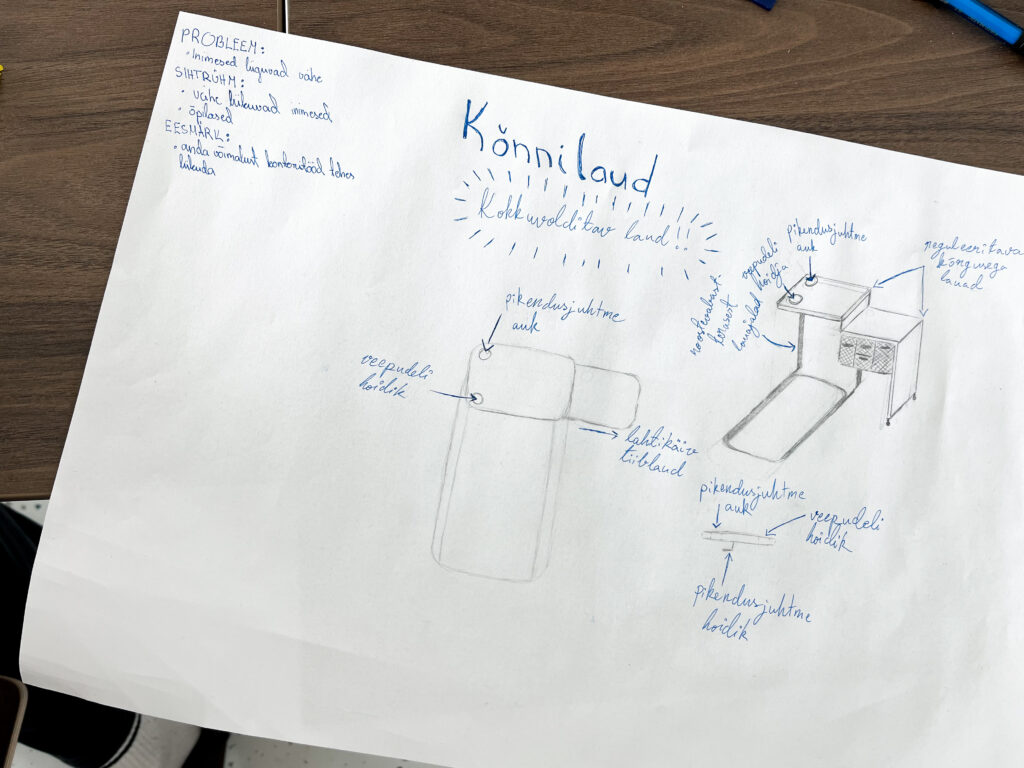 PROBLEEM:
• Inimesed liiguvad vähe
SIHTRÜHM:
• vähe liikuvad inimesed
• õpilased
EESMÄRK:
• anda võimalust kontoritööd tehes
liikuda
Kõnnilaud
Kokkuvolditav laud!!
pikendusjuhtme
auk
veepudeli
hoidik
lahtikäiv
tiiblaud
veepudeli
hoidja
pikendusjuhtme
auk
reguleeritava
kõrgusega
lauad
roostevabast
terasest
lauajalad
pikendusjuhtme
auk
veepudeli
hoidik
pikendusjuhtme
hoidik